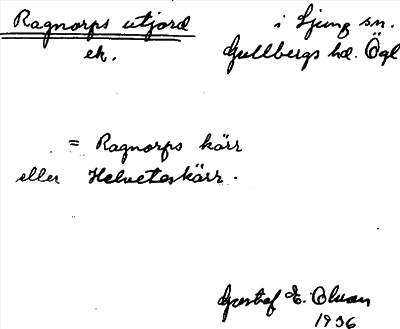 Ragnorps utjord i Ljung sn.
ek. Gullbergs hd. Ögl
= Ragnorps kärr
eller Helveteskärr.
Gustaf E. Olvan
1936